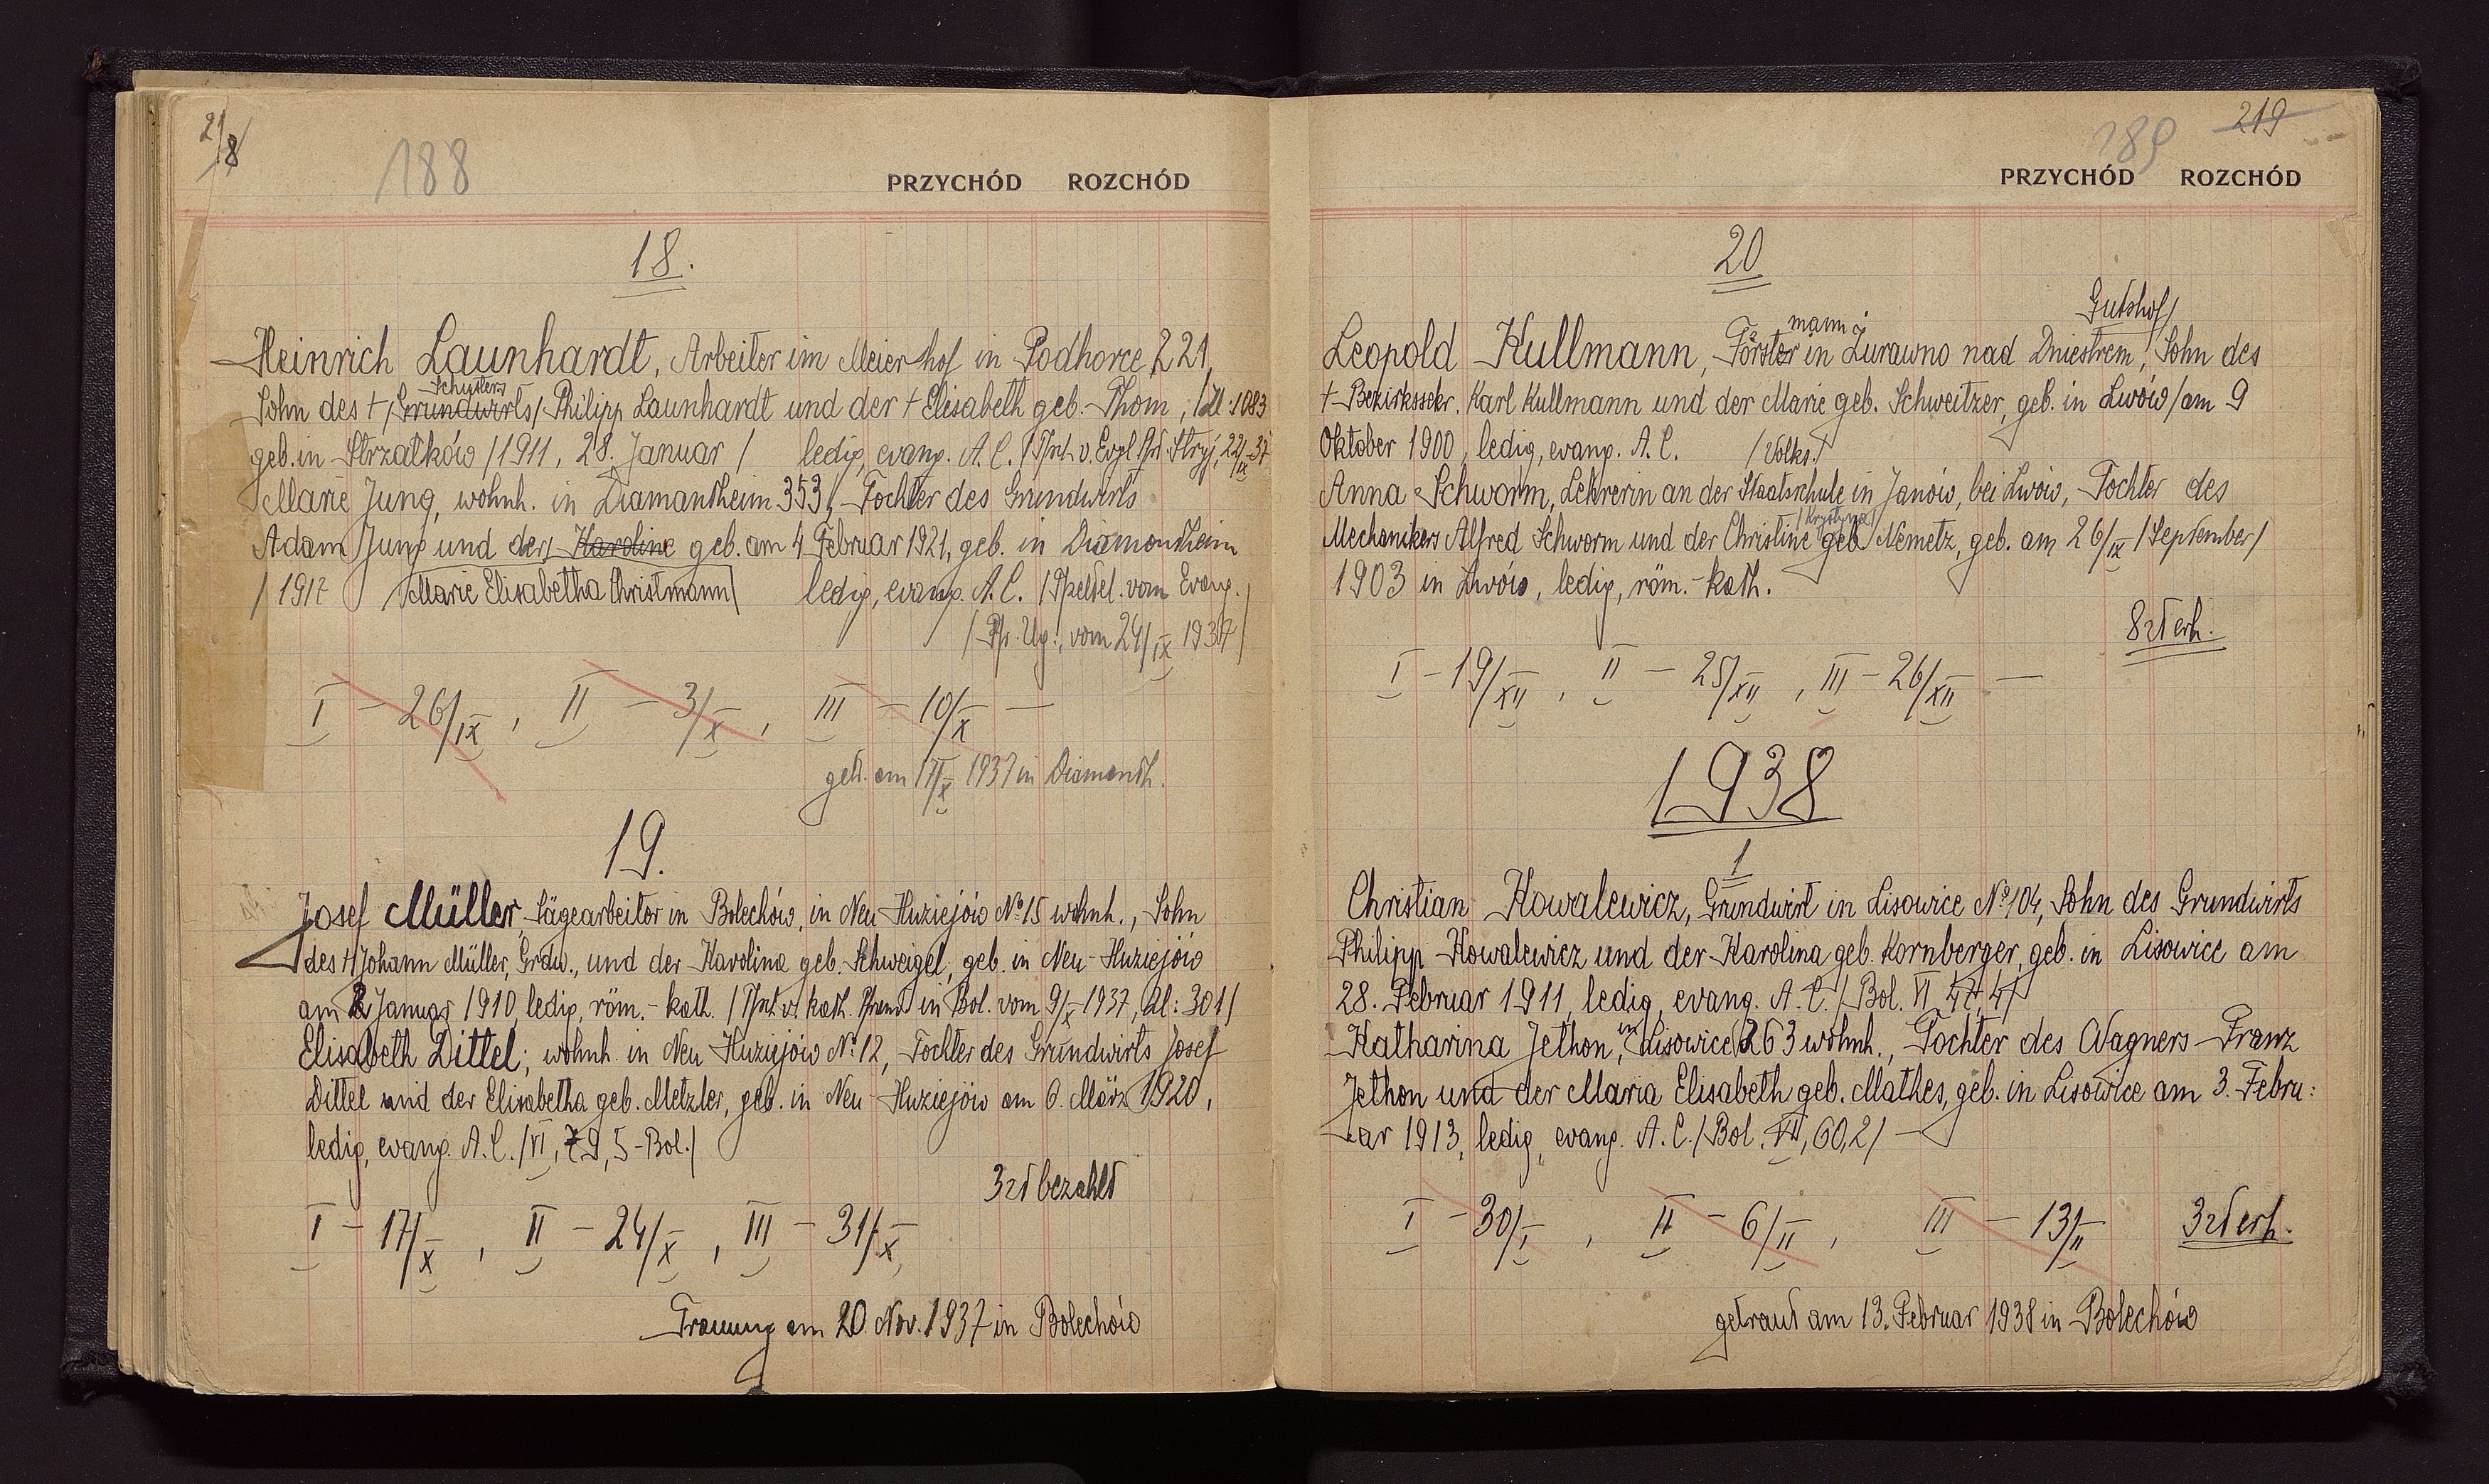 218
188
PRZYCHÓD ROZCHÓD
18.
Heinrich Launhardt, Arbeiter im Meierhof in Podhorce 221,
Schusters
Sohn des + /Grundwirts/ Philipp Launhardt und der + Elisabeth geb. Thom, /Zl: 1083
geb. in Strzałków /1911, 28. Januar/ ledig, evang. A. C. /Pfrt. v. Evgl. Pfr. Stryj, 22/IX 37
Marie Jung, wohnh. in Diamantheim 353, Tochter des Grundwirts
Adam Jung und der Karoline geb. am 4 Februar 1921, geb. in Diamondheim
/1917 /Marie Elisabetha Christmann/ ledig, evang. A. C. vom Evang.
vom 24/IX 1937/
I – 26/IX, II – 3/X, III – 10/X –
getr. am 17/X 1937 in Diamonth.
19.
Josef Müller, Sägearbeiter in Bolechów, in Neu Huziejów No 15 wohnh., Sohn
des + Johann Müller, Grdw., und der Karolina geb. Schweigel, geb. in Neu-Huziejów
am 2 Januar 1910, ledig, röm.-kath. in Bol. vom 9/X 1937, Zl: 301/
Elisabeth Dittel, wohnh. in Neu Huziejów No 12, Tochter des Grundwirts Josef
Dittel und der Elisabetha geb. Metzler, geb. in Neu-Huziejów am 6. März 1920,
ledig, evang. A. C. /VI, 79, 5-Bol./
3 zł bezahlt
I – 17/X, II – 24/X, III – 31/X
Trauung am 20. Nov. 1937 in Bolechów
219
189
PRZYCHÓD ROZCHÓD
20
Gutshof/
mann
Leopold Kullmann, Förster in Żurawno nad Dniestrem, Sohn des
+ Bezirkssekr. Karl Kullmann und der Marie geb. Schweitzer, geb. in Lwów/am 9
Oktober 1900, ledig, evang. A. C. /Volks./
Anna Schworm, Lehrerin an der Staatsschule in Janów, bei Lwów, Tochter des
/Krystyna/
Mechanikers Alfred Schworm und der Christine geb. Nemetz, geb. am 26/IX /September/
1903 in Lwów, ledig, röm.-kath.
8 zł erh.
I – 19/XII, II – 25/XII, III – 26/XII –
1938
1
Christian Kowalewicz, Grundwirt in Lisowice No 104, Sohn des Grundwirts
Philipp Kowalewicz und der Karolina geb. Kornberger, geb. in Lisowice am
28. Februar 1911, ledig, evang. A. C. /Bol. VI, 47, 4/
in
Katharina Jethon, Lisowice 263 wohnh., Tochter des Wagners Franz
Jethon und der Maria Elisabeth geb. Mathes, geb. in Lisowice am 3. Febru:
ar 1913, ledig, evang. A. C. /Bol. VI, 60, 2/ –
I – 30/I, II – 6/II, III – 13/II 3 zł erh.
getraut am 13. Februar 1938 in Bolechów